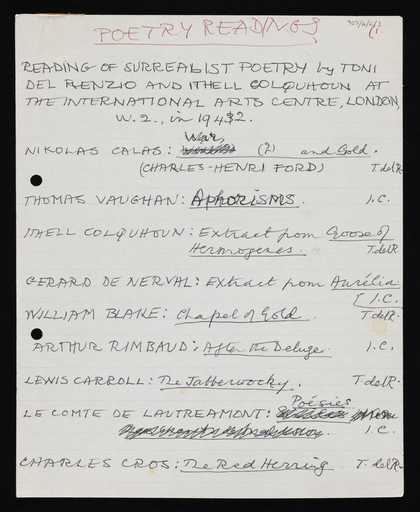 POETRY READINGS
READING OF SURREALIST POETRY by TONI
DEL RENZIO AND ITHELL COLQUHOUN AT
THE INTERNATIONAL ARTS CENTRE, LONDON,
W.2., in 1942.
War,
NIKOLAS CALAS: (?) and Gold.
(CHARLES-HENRI FORD) T del R.
THOMAS VAUGHAN: Aphorisms. I.C.
ITHELL COLQUHOUN: Extract from Goose of
Hermogenes. T del R.
GERARD DE NERVAL: Extract from Aurélia
I.C.
WILLIAM BLAKE: Chapel of Gold. T del R.
ARTHUR RIMBAUD: After the Deluge. I.C.
LEWIS CARROLL: The Jabberwocky. T del R.
Poésies
LE COMTE DE LAUTREAMONT:
I.C.
CHARLES CROS: The Red Herring T. del R.